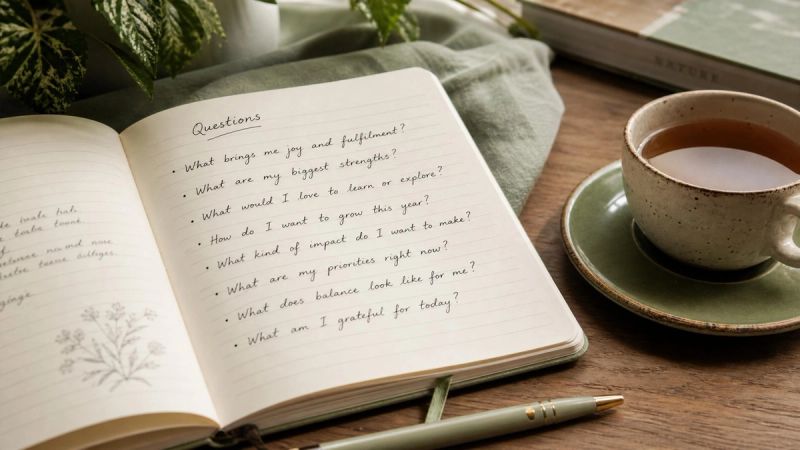 Questions
• What brings me joy and fulfilment?
• What are my biggest strengths?
• What would I love to learn or explore?
• How do I want to grow this year?
• What kind of impact do I want to make?
• What are my priorities right now?
• What does balance look like for me?
• What am I grateful for today?
NATURE